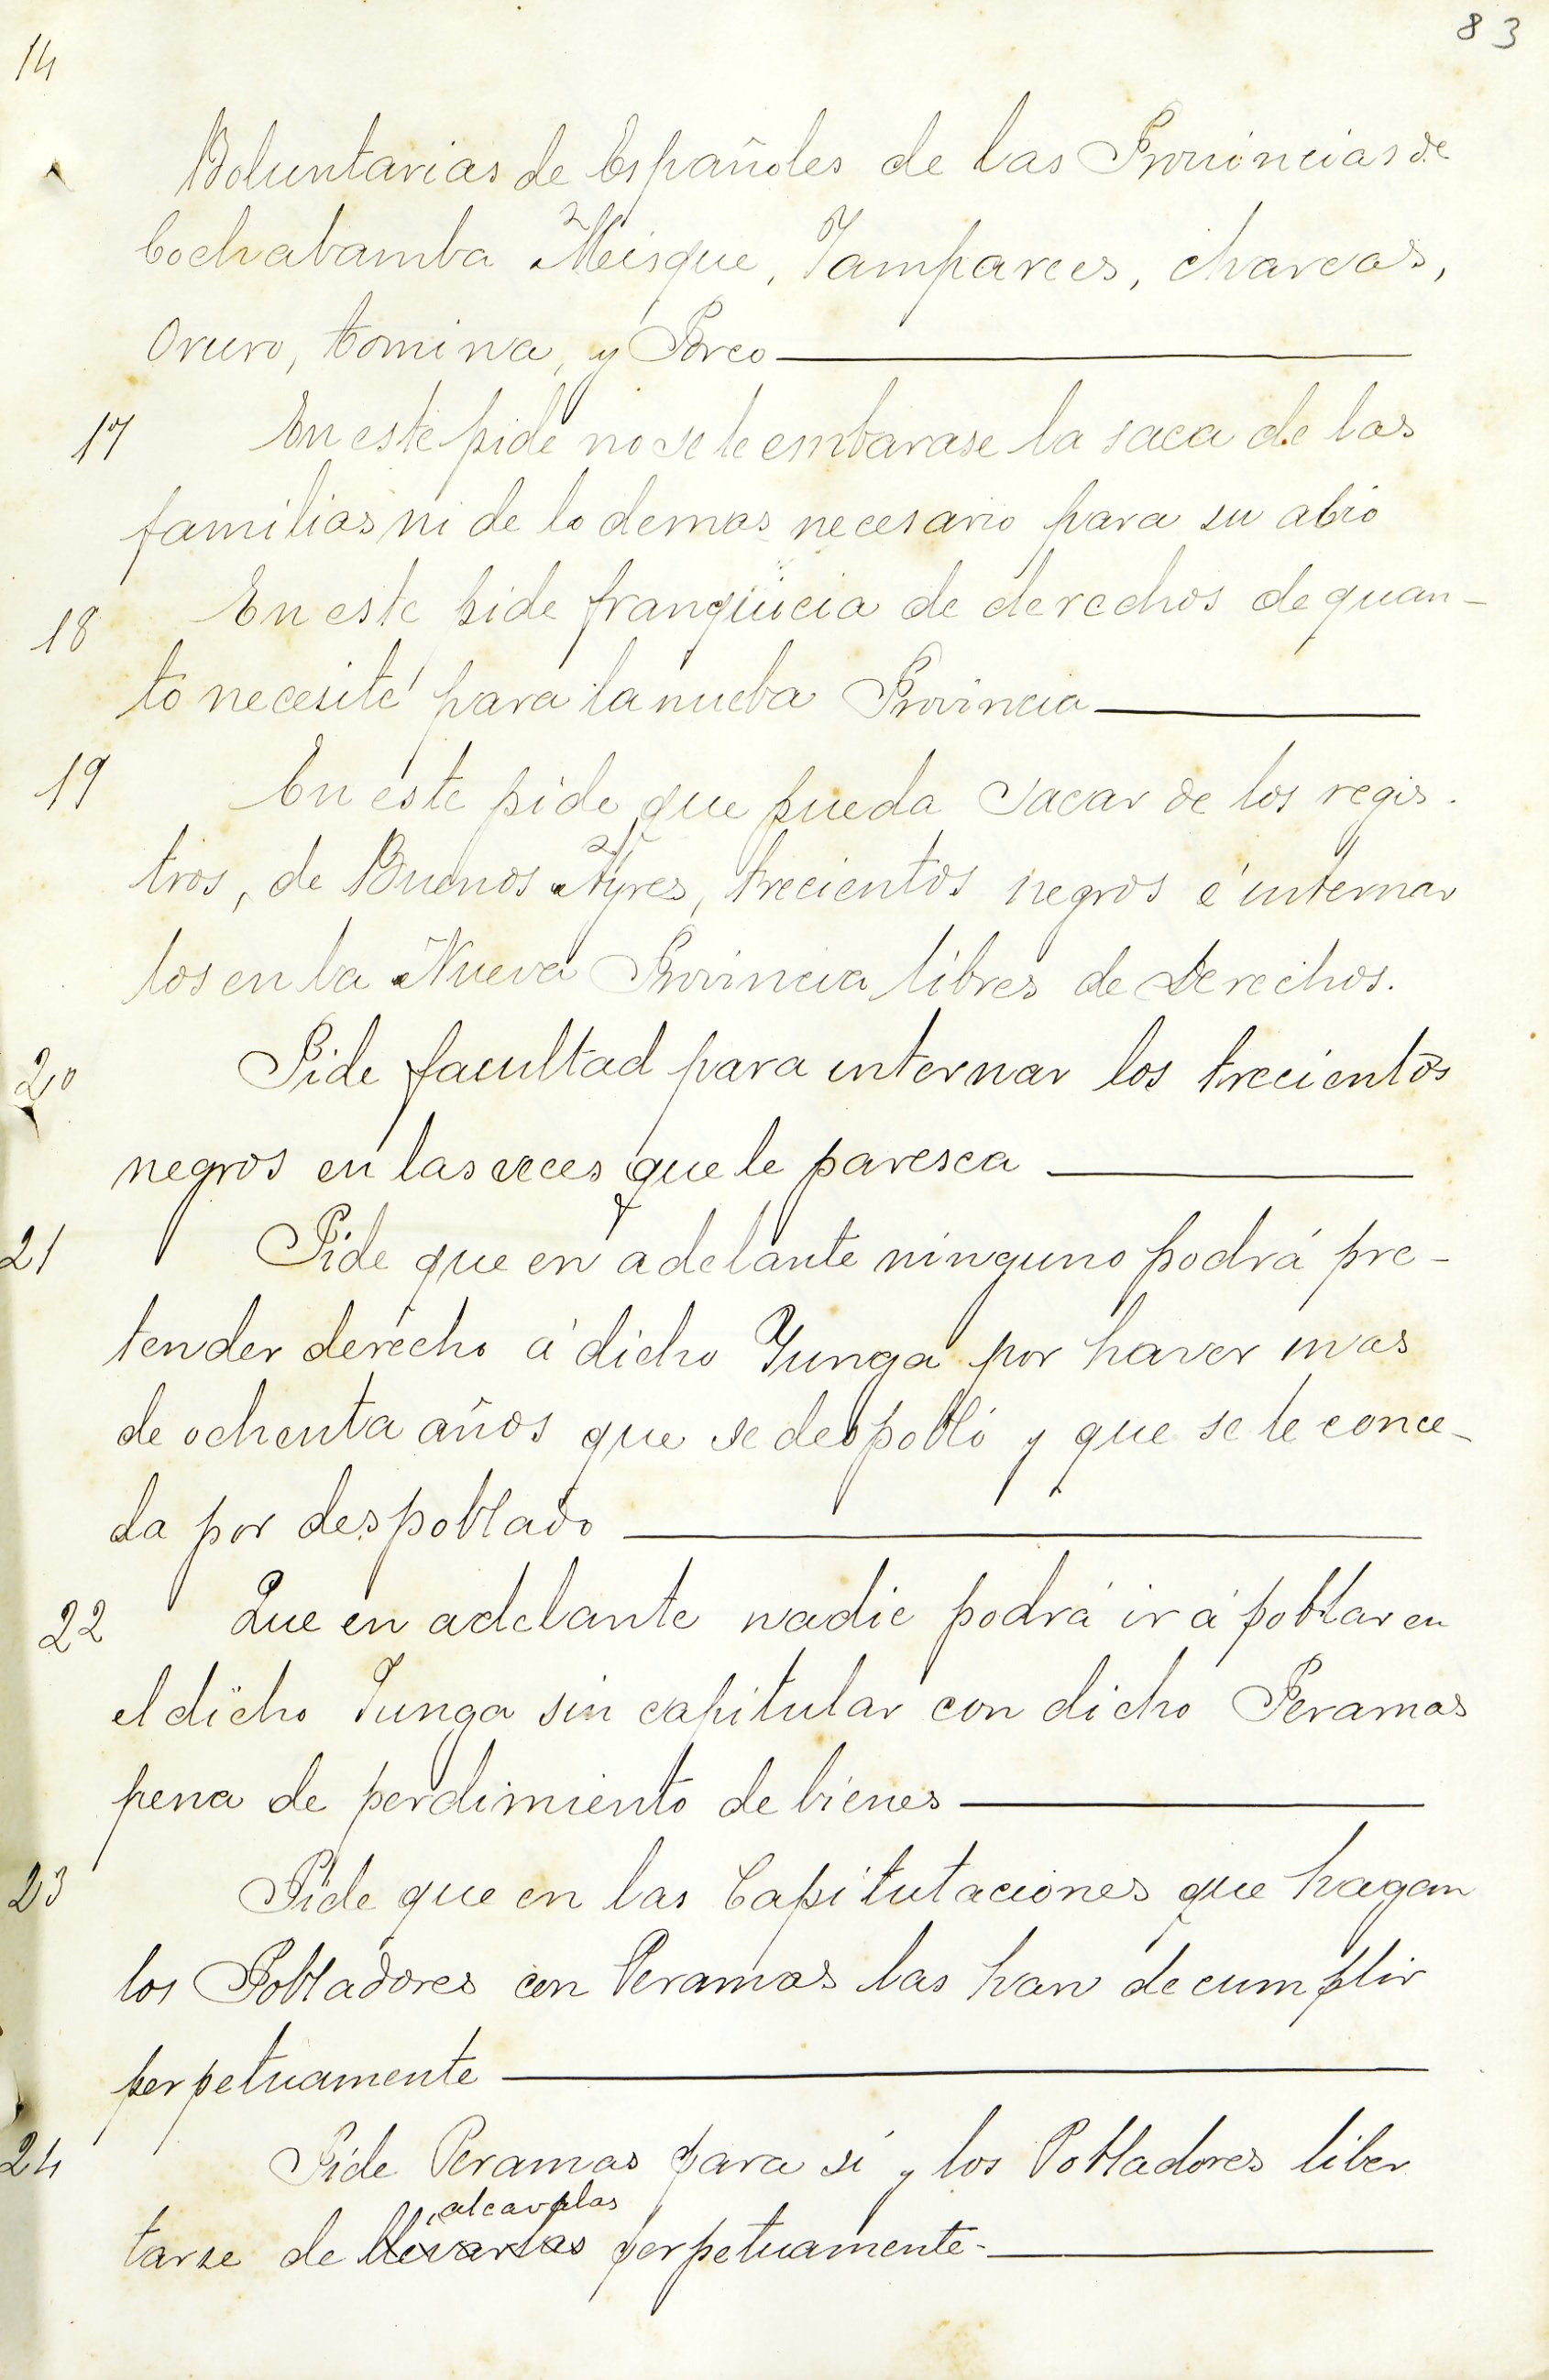 83
14
Boluntarias de Españoles de las Provincias de
Cochabamba Meisque, Yamparees, charcas,
Oruro, tomina, y Porco
17 En este pide no se le embarase la saca de las
familias ni de lo demas necesario para su abio
18 En este pide franqüicia de derechos de quan-
to necesité para la nueba Provincia
19 En este pide que pueda sacar de los regis.
tros, de Buenos Ayres, trecientos negros é internar
los en la Nueva Provincia libres de Derechos.
20 Pide facultad para internar los trecientos
negros en las veces que le paresca
21 Pide que en adelante ninguno podrá pre-
tender derecho á dicho Yunga por haver mas
de ochenta años que se despobló y que se le conce-
da por despoblado
22 Que en adelante nadie podrá ir á poblar en
el dicho Yunga sin capitular con dicho Peramas
pena de perdimiento de bienes
23 Pide que en las Capitulaciones que hagan
los Pobladores con Peramas las han de cumplir
perpetuamente
24 Pide Peramas para si y los Pobladores liber
alcavalas
tarse de llivarlas perpetuamente-